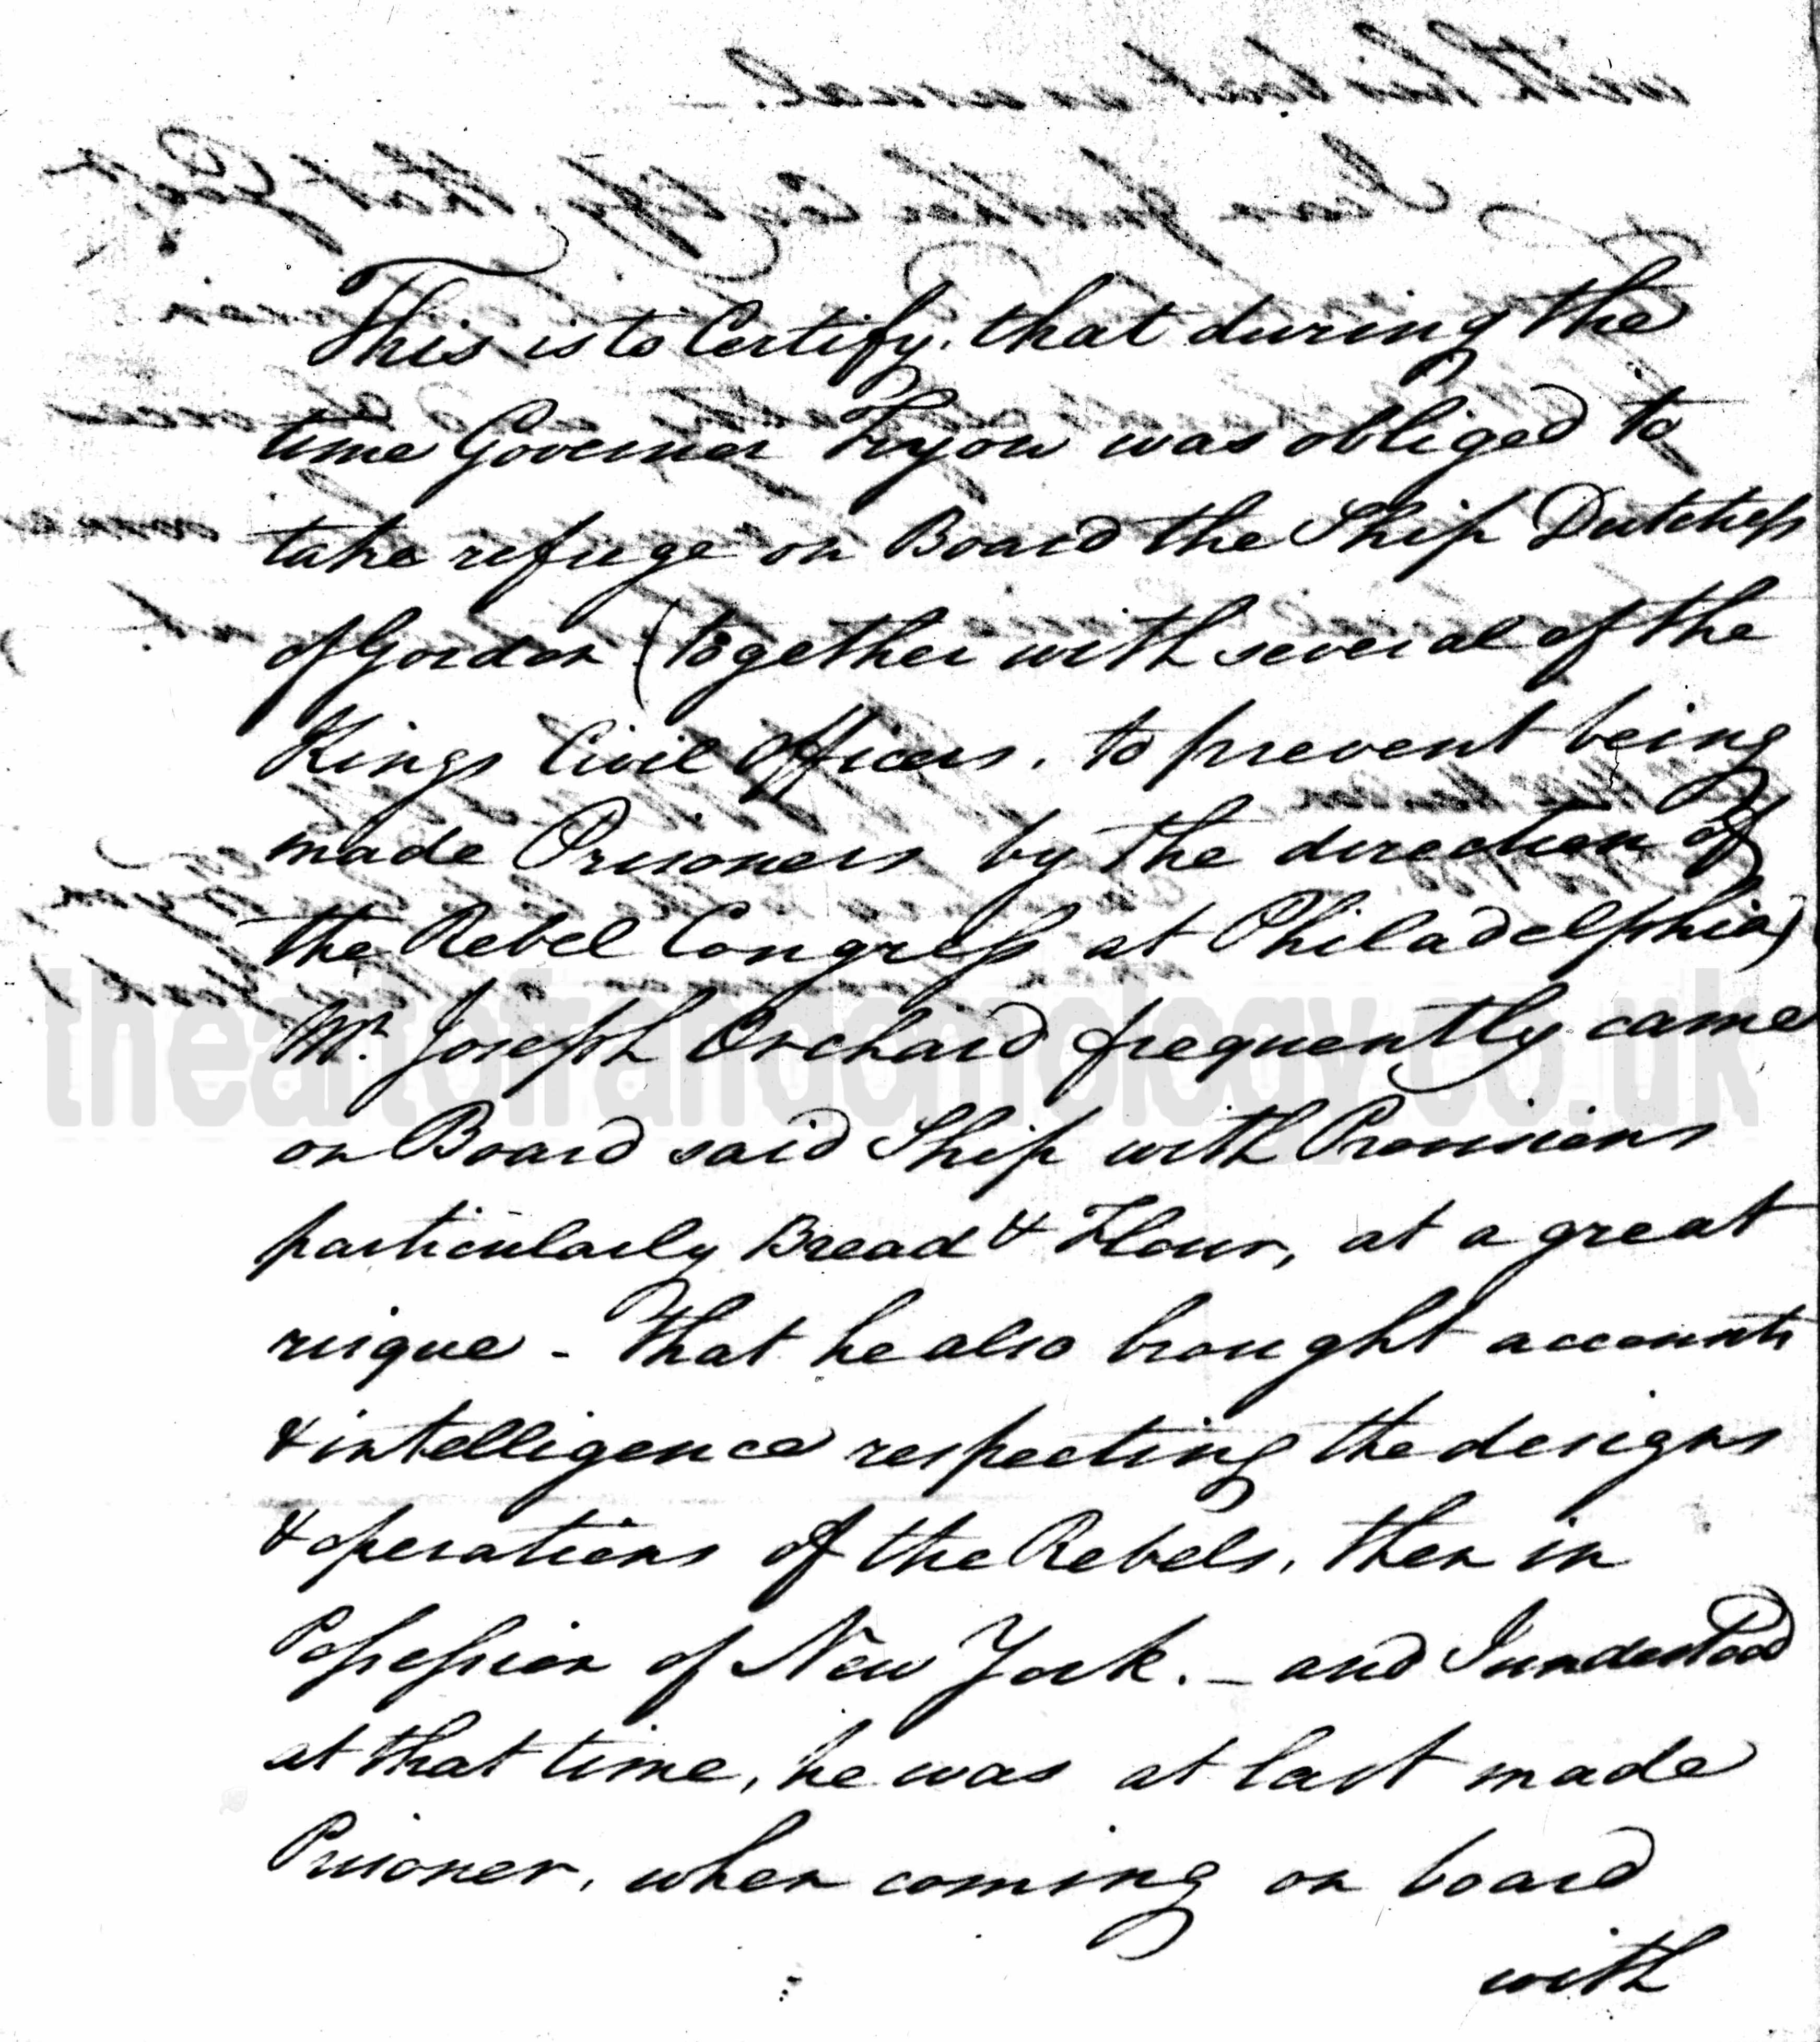 with his boat as usual. -
I can further Certify, that Capt
This is to Certify, that during the
time Governer Tryon was obliged to
take refuge on Board the Ship Dutchess
of Gordon (together with several of the
Kings Civil Officers, to prevent being
made Prisoners by the direction of
the Rebel Congress at Philadelphia)
Mr. Joseph Orchard frequently came
on Board said Ship with Provisions
particularly Bread & Flour, at a great
risque - That he also brought accounts
& intelligence respecting the designs
& operations of the Rebels, then in
Possession of New York. - and I understood
at that time, he was at last made
Prisoner, when coming on board
with
theartofrandomology.co.uk